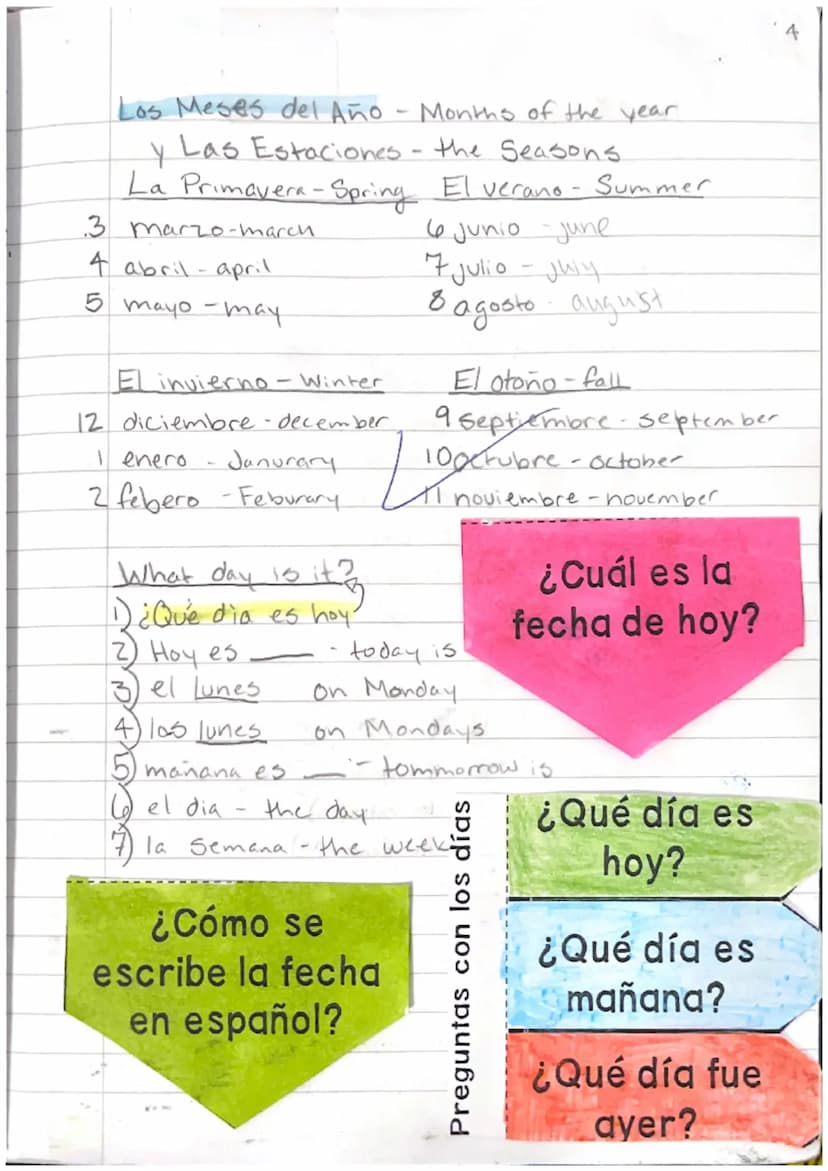 4
Los Meses del Año - Months of the year
y Las Estaciones - the Seasons
La Primavera - Spring
3 marzo - march
4 abril - april
5 mayo - may
El verano - Summer
6 junio - june
7 julio - july
8 agosto - august
El invierno - Winter
12 diciembre - december
1 enero - Janurary
2 febero - Feburary
El otoño - fall
9 septiembre - september
10 octubre - october
11 noviembre - november
What day is it?
1) ¿Qué dia es hoy
2) Hoy es ___ - today is
3) el lunes on Monday
4) los lunes on Mondays
5) mañana es ___ - tommorrow is
6) el dia - the day
7) la semana - the week
¿Cuál es la
fecha de hoy?
¿Cómo se
escribe la fecha
en español?
Preguntas con los días
¿Qué día es
hoy?
¿Qué día es
mañana?
¿Qué día fue
ayer?